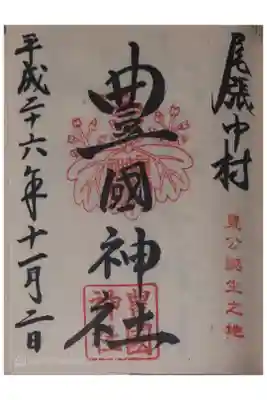 尾張中村
豊公誕生之地
豊國神社
豊国
神社
平成二十六年十一月二日